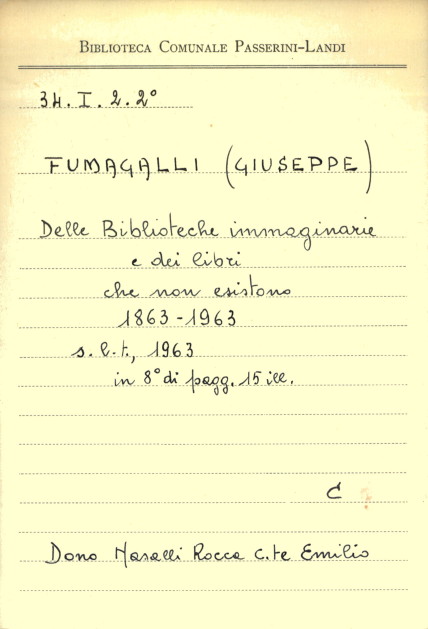 BIBLIOTECA COMUNALE PASSERINI-LANDI
34. I. 2. 2°
FUMAGALLI (GIUSEPPE)
Delle Biblioteche immaginarie
e dei libri
che non esistono
1863-1963
s.l.t., 1963
in 8° di pagg. 15 ill.
C
Dono Nasalli Rocca C.te Emilio